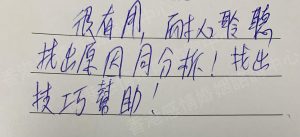 很有用，耐人聆聽
找出原因同分析！找出
技巧幫助！